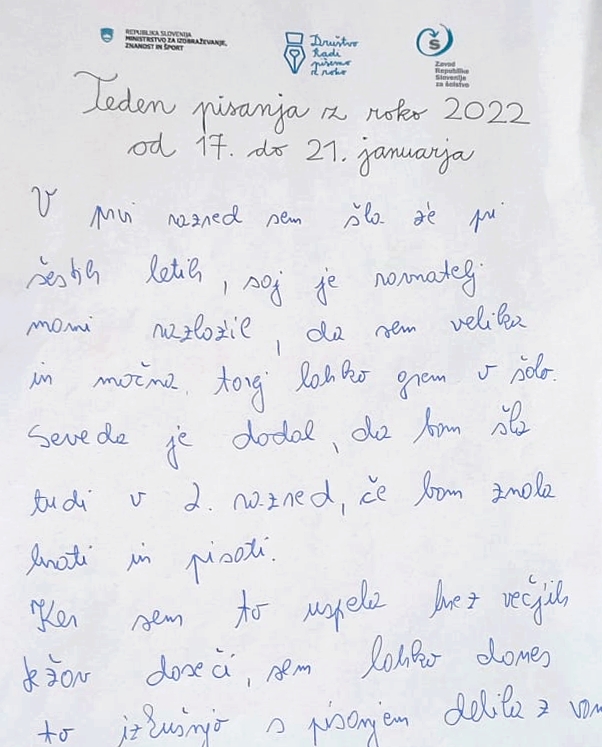 REPUBLIKA SLOVENIJA
MINISTRSTVO ZA IZOBRAŽEVANJE,
ZNANOST IN ŠPORT
Društvo
Radi
pišemo
z roko
Š
Zavod
Republike
Slovenije
za šolstvo
Teden pisanja z roko 2022
od 17. do 21. januarja
V prvi razred sem šla že pri
šestih letih, saj je ravnatelj
mami razložil, da sem velika
in močna, torej lahko grem v šolo.
Seveda je dodal, da bom šla
tudi v 2. razred, če bom znala
brati in pisati.
Ker sem to uspela brez večjih
težav doseči, sem lahko danes
to izkušnjo s pisanjem delila z vam